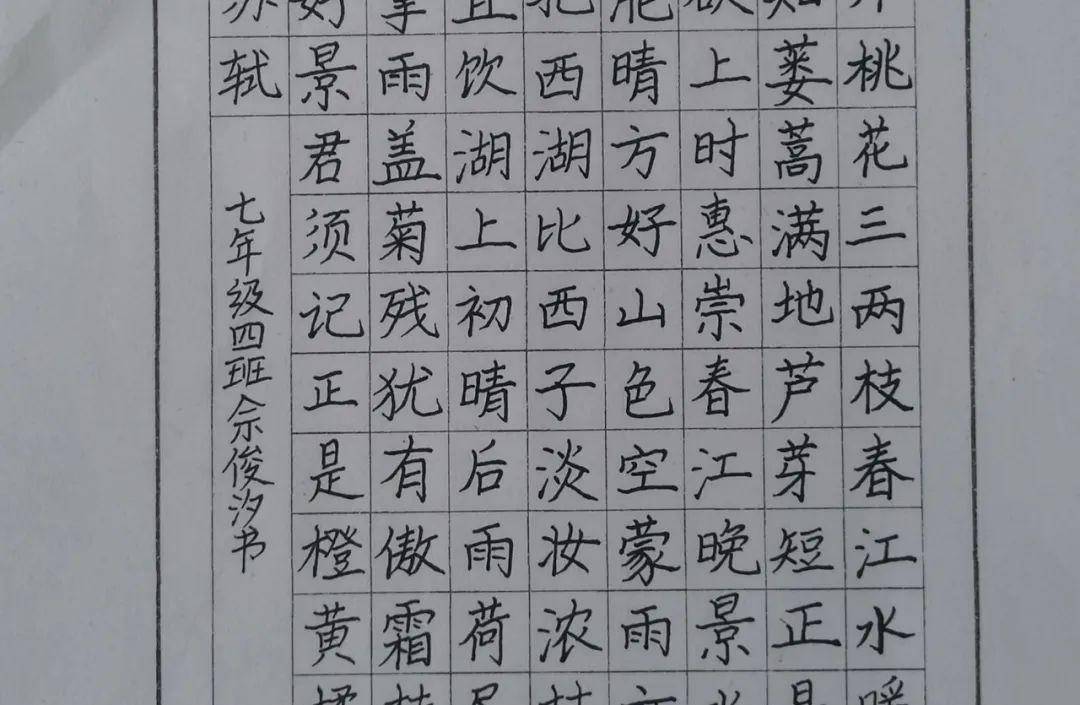 桃花三两枝春江水暖
知蒌蒿满地芦芽短正是
欲上时惠崇春江晚景水
晴方好山色空蒙雨亦
把西湖比西子淡妆浓抹
宜饮湖上初晴后雨荷尽
擎雨盖菊残犹有傲霜枝
好景君须记正是橙黄橘
苏轼
七年级四班佘俊汐书